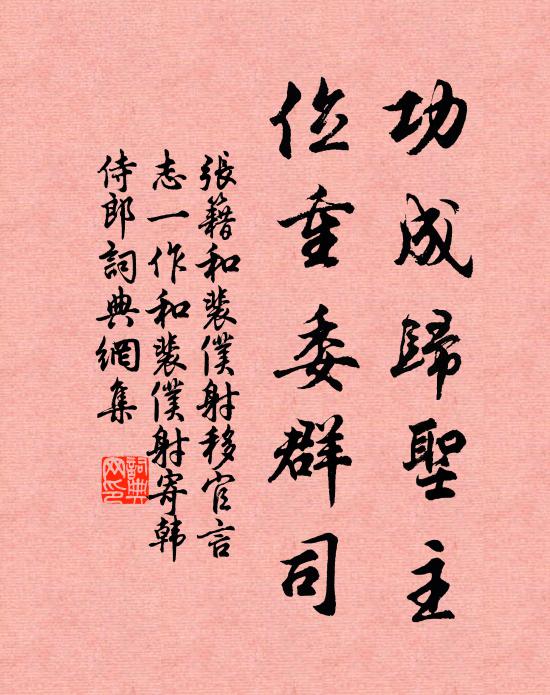 功成歸聖主
位重委群司
張籍和裴僕射移官言
志一作和裴僕射寄韩
侍郎詞典網集
詞典网印